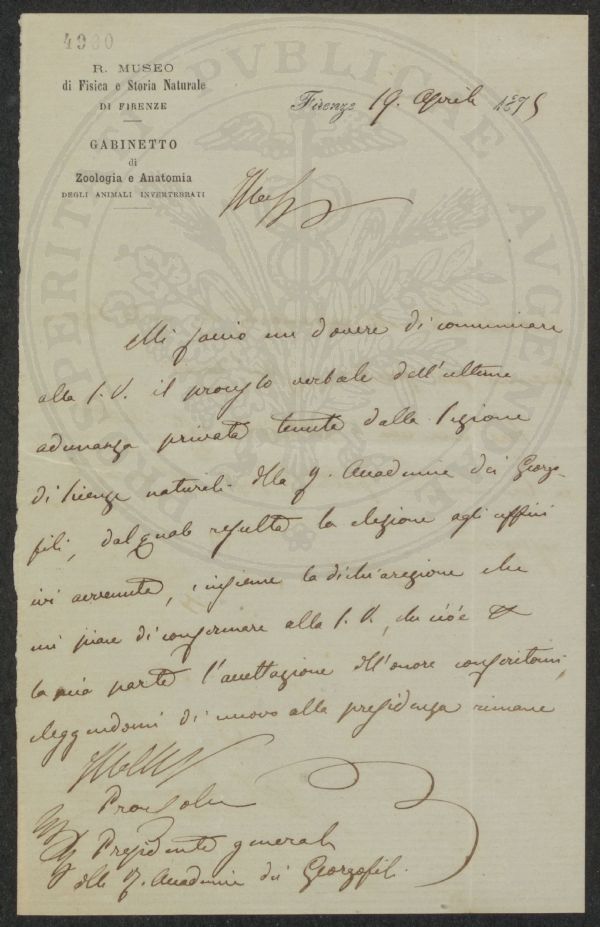 4980
R. MUSEO
di Fisica e Storia Naturale
DI FIRENZE
GABINETTO
di
Zoologia e Anatomia
DEGLI ANIMALI INVERTEBRATI
Firenze 19. Aprile 1875
PROSPERITATI PUBLICAE AUGENDAE
Mi faccio un dovere di comunicare
alla S. V. il processo verbale dell'ultima
adunanza privata tenuta dalla Sezione
di Scienze naturali della R. Accademia dei Georgo-
fili, dal quale resulta la elezione agli uffici
ivi avvenuta, insieme la dichiarazione che
mi piace di confermare alla S. V., che cioè
la mia parte l'accettazione dell'onore conferitomi,
eleggendomi di nuovo alla presidenza rimane
Presidente generale
della R. Accademia dei Georgofili.